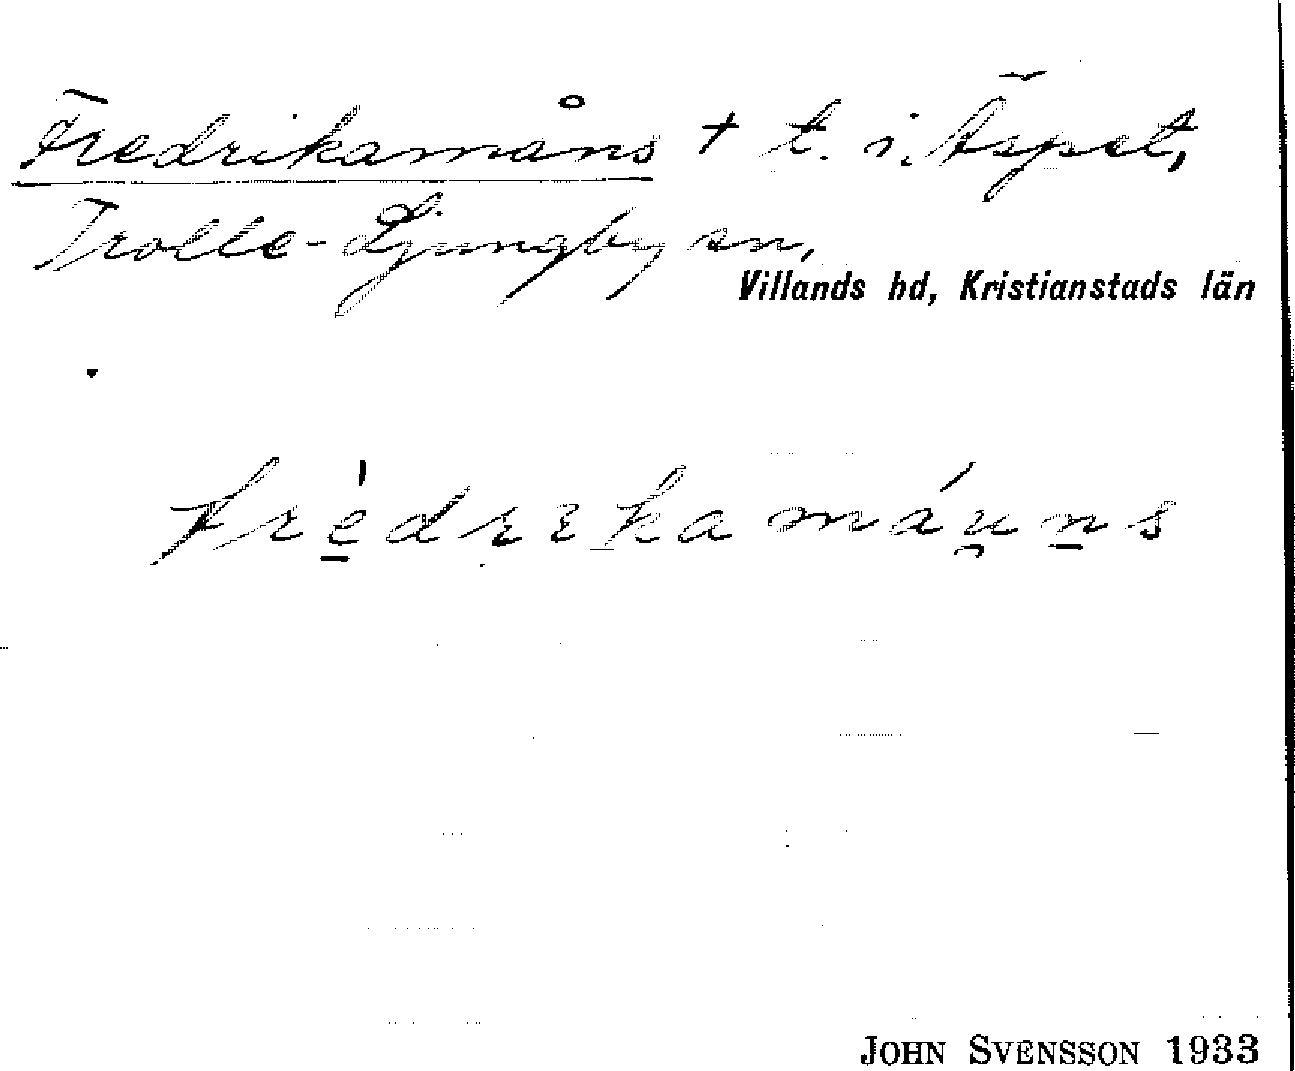 Fredrikamåns + t. i Äspet,
Trolle-Ljungby sn,
Villands hd, Kristianstads län
JOHN SVENSSON 1933